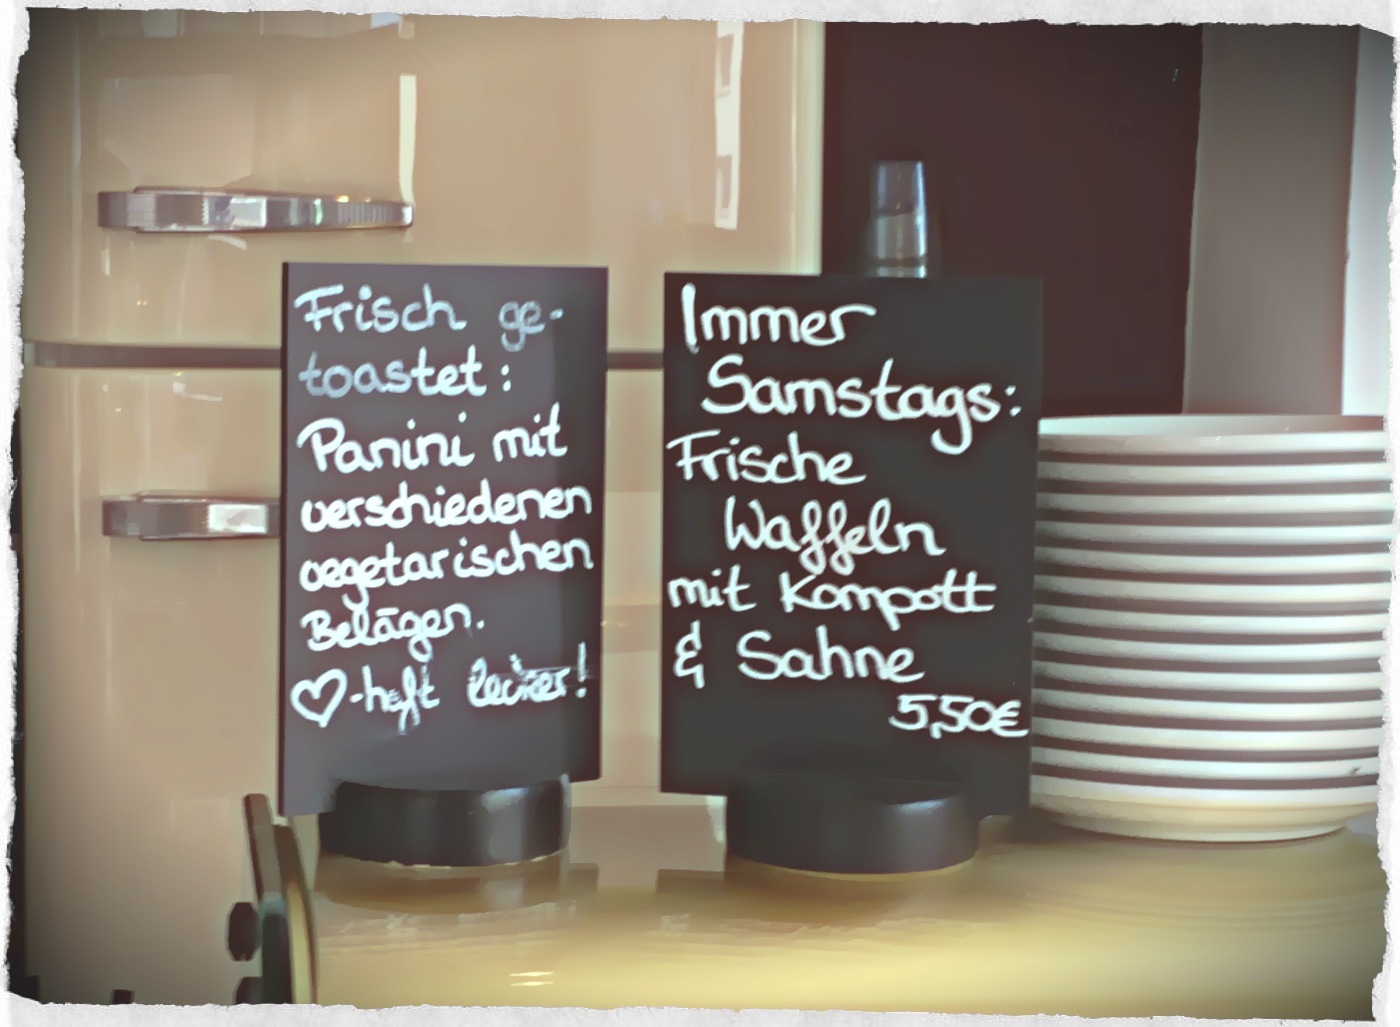 Frisch ge-
toastet:
Panini mit
verschiedenen
vegetarischen
Belägen.
♡-haft lecker!
Immer
Samstags:
Frische
Waffeln
mit Kompott
& Sahne
5,50€